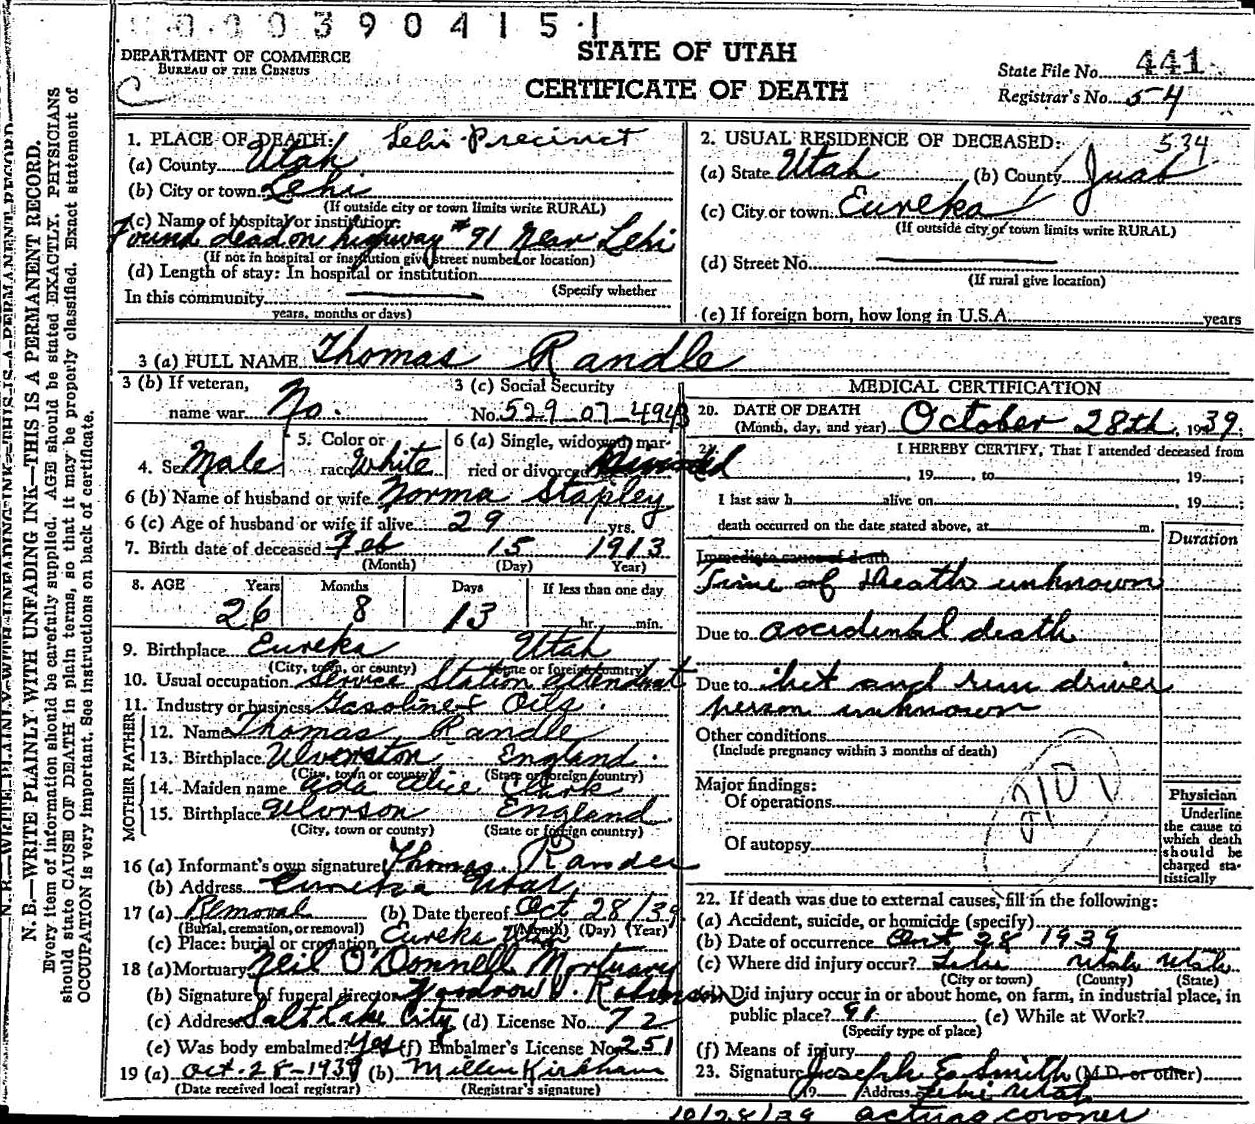 0000390415 1
DEPARTMENT OF COMMERCE
BUREAU OF THE CENSUS
STATE OF UTAH
CERTIFICATE OF DEATH
State File No. 441
Registrar's No. 54
N. B.—WRITE PLAINLY WITH UNFADING INK—THIS IS A PERMANENT RECORD.
N. B.—WRITE PLAINLY WITH UNFADING INK—THIS IS A PERMANENT RECORD.
Every item of information should be carefully supplied. AGE should be stated EXACTLY. PHYSICIANS
should state CAUSE OF DEATH in plain terms, so that it may be properly classified. Exact statement of
OCCUPATION is very important. See instructions on back of certificate.
1. PLACE OF DEATH: Lehi Precinct
(a) County Utah
(b) City or town Lehi
(If outside city or town limits write RURAL)
(c) Name of hospital or institution:
Found dead on highway #91 near Lehi
(If not in hospital or institution give street number or location)
(d) Length of stay: In hospital or institution
(Specify whether
In this community
years, months or days)
2. USUAL RESIDENCE OF DECEASED: 534
(a) State Utah (b) County Juab
(c) City or town Eureka
(If outside city or town limits write RURAL)
(d) Street No.
(If rural give location)
(e) If foreign born, how long in U.S.A. years
3 (a) FULL NAME Thomas Randle
3 (b) If veteran,
name war No.
3 (c) Social Security
No. 529-07-4943
4. Sex Male
5. Color or
race White
6 (a) Single, widowed, mar-
ried or divorced Divorced
6 (b) Name of husband or wife Norma Stapley
6 (c) Age of husband or wife if alive 29 yrs.
7. Birth date of deceased Feb 15 1913
(Month) (Day) (Year)
8. AGE Years Months Days If less than one day
26 8 13 hr. min.
9. Birthplace Eureka Utah
(City, town, or county) (State or foreign country)
10. Usual occupation Service Station attendant
11. Industry or business Gasoline & Oils.
FATHER
12. Name Thomas Randle
13. Birthplace Ulverston England
(City, town or county) (State or foreign country)
MOTHER
14. Maiden name Ada Alice Clark
15. Birthplace England
(City, town or county) (State or foreign country)
16 (a) Informant's own signature Thomas Randle
(b) Address Eureka Utah
17 (a) Removal (b) Date thereof Oct 28/39
(Burial, cremation, or removal) (Month) (Day) (Year)
(c) Place: burial or cremation Eureka Utah
18 (a) Mortuary Neil O'Donnell Mortuary
(b) Signature of funeral director Woodrow D. Robinson
(c) Address Salt Lake City (d) License No. 72
(e) Was body embalmed? Yes (f) Embalmer's License No. 251
19 (a) Oct-28-1939 (b) Kirkham
(Date received local registrar) (Registrar's signature)
MEDICAL CERTIFICATION
20. DATE OF DEATH
(Month, day, and year) October 28th, 1939;
21. I HEREBY CERTIFY, That I attended deceased from
, 19 , to , 19 ;
I last saw h alive on , 19 ;
death occurred on the date stated above, at m.
Duration
Immediate cause of death
Time of Death unknown
Due to accidental death
Due to hit and run driver
person unknown
Other conditions
(Include pregnancy within 3 months of death)
Major findings:
Of operations
Of autopsy
2101
Physician
Underline
the cause to
which death
should be
charged sta-
tistically
22. If death was due to external causes, fill in the following:
(a) Accident, suicide, or homicide (specify)
(b) Date of occurrence Oct 28 1939
(c) Where did injury occur? Lehi Utah Utah
(City or town) (County) (State)
(d) Did injury occur in or about home, on farm, in industrial place, in
public place? 91 (e) While at Work?
(Specify type of place)
(f) Means of injury
23. Signature Joseph E. Smith (M.D. or other)
19 Address Lehi Utah
10/28/39 acting coroner